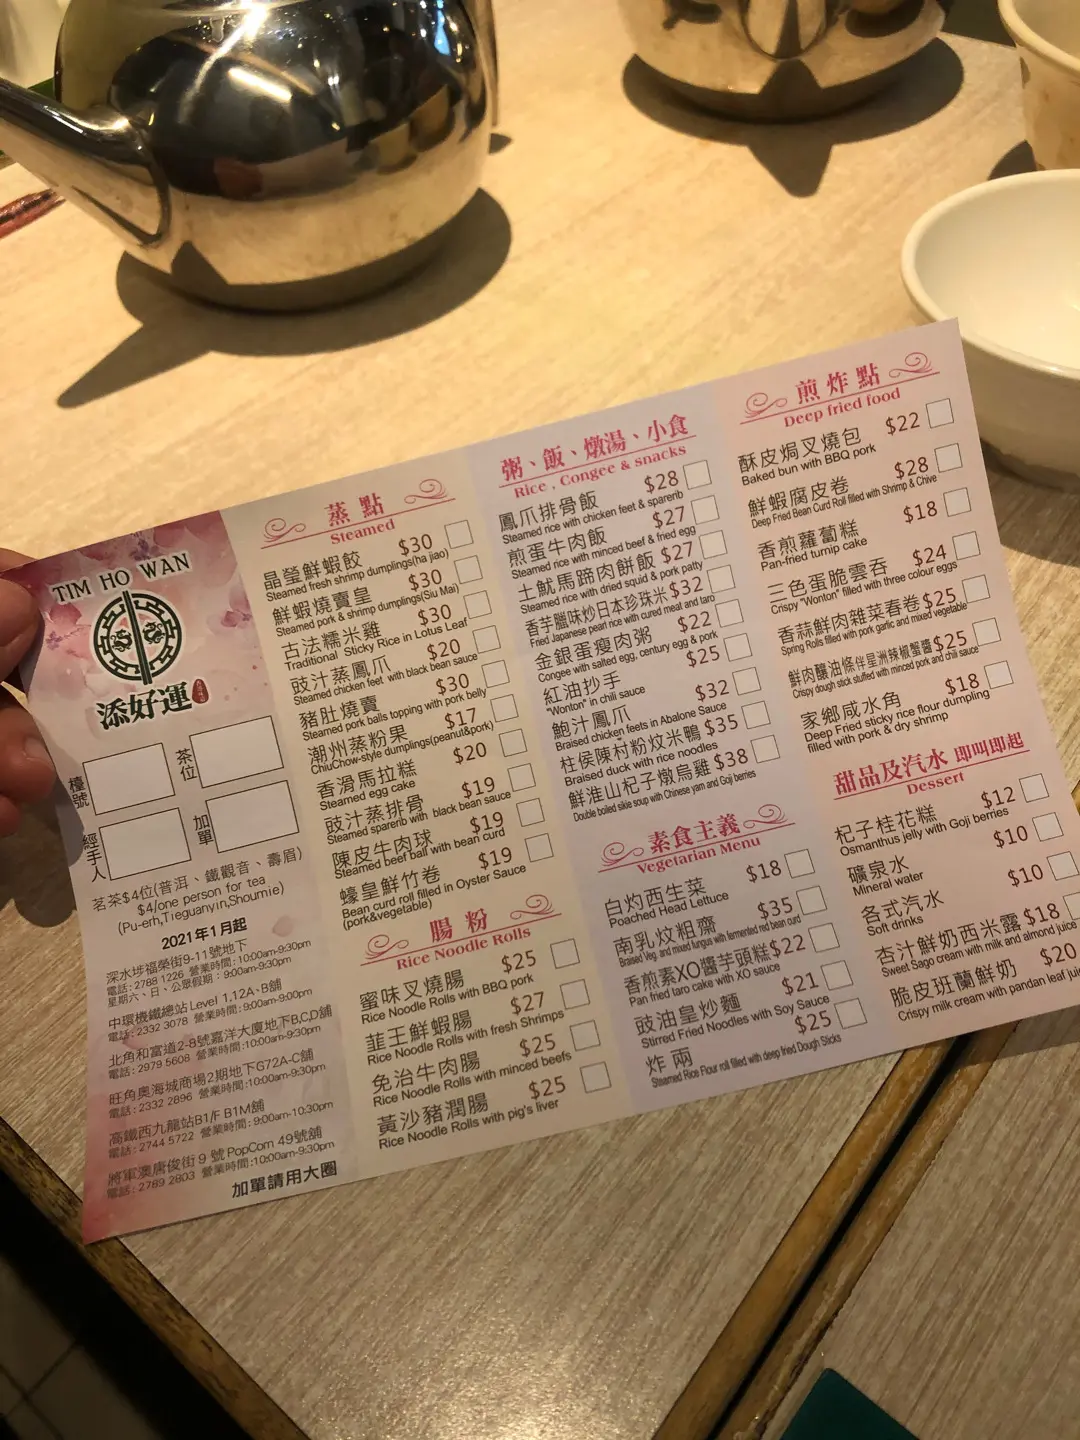 TIM HO WAN
添好運
檯號
茶位
經手人
加單
茗茶$4位(普洱、鐵觀音、壽眉)
$4/one person for tea
(Pu-erh,Tieguanyin,Shoumie)
2021年1月起
深水埗福榮街9-11號地下
電話:2788 1226 營業時間:10:00am-9:30pm
星期六、日、公眾假期:9:00am-9:30pm
中環機鐵總站 Level 1,12A-B舖
電話:2332 3078 營業時間:9:00am-9:00pm
北角和富道2-8號嘉洋大廈地下B,C,D舖
電話:2979 5608 營業時間:10:00am-9:30pm
旺角奧海城商場2期地下G72A-C舖
電話:2332 2896 營業時間:10:00am-9:30pm
高鐵西九龍站B1/F B1M舖
電話:2744 5722 營業時間:9:00am-10:30pm
將軍澳唐俊街 9 號 PopCorn 49號舖
電話:2789 2803 營業時間:10:00am-9:30pm
加單請用大圈
蒸點
Steamed
晶瑩鮮蝦餃 $30
Steamed fresh shrimp dumplings(ha jiao)
鮮蝦燒賣皇 $30
Steamed pork & shrimp dumplings(Siu Mai)
古法糯米雞 $30
Traditional Sticky Rice in Lotus Leaf
豉汁蒸鳳爪 $20
Steamed chicken feet with black bean sauce
豬肚燒賣 $30
Steamed pork balls topping with pork belly
潮州蒸粉果 $17
ChiuChow-style dumplings(peanut&pork)
香滑馬拉糕 $20
Steamed egg cake
豉汁蒸排骨 $19
Steamed sparerib with black bean sauce
陳皮牛肉球 $19
Steamed beef ball with bean curd
蠔皇鮮竹卷 $19
Bean curd roll filled in Oyster Sauce
(pork&vegetable)
腸粉
Rice Noodle Rolls
蜜味叉燒腸 $25
Rice Noodle Rolls with BBQ pork
韮王鮮蝦腸 $27
Rice Noodle Rolls with fresh Shrimps
免治牛肉腸 $25
Rice Noodle Rolls with minced beefs
黃沙豬潤腸 $25
Rice Noodle Rolls with pig's liver
粥、飯、燉湯、小食
Rice , Congee & snacks
鳳爪排骨飯 $28
Steamed rice with chicken feet & sparerib
煎蛋牛肉飯 $27
Steamed rice with minced beef & fried egg
土魷馬蹄肉餅飯 $27
Steamed rice with dried squid & pork patty
香芋臘味炒日本珍珠米 $32
Fried Japanese pearl rice with cured meat and taro
金銀蛋瘦肉粥 $22
Congee with salted egg, century egg & pork
紅油抄手 $25
"Wonton" in chili sauce
鮑汁鳳爪 $32
Braised chicken feets in Abalone Sauce
柱侯陳村粉炆米鴨 $35
Braised duck with rice noodles
鮮淮山杞子燉烏雞 $38
Double boiled silkie soup with Chinese yam and Goji berries
素食主義
Vegetarian Menu
白灼西生菜 $18
Poached Head Lettuce
南乳炆粗齋 $35
Braised Veg. and mixed fungus with fermented red bean curd
香煎素XO醬芋頭糕 $22
Pan fried taro cake with XO sauce
豉油皇炒麵 $21
Stirred Fried Noodles with Soy Sauce
炸兩 $25
Steamed Rice Flour roll filled with deep fried Dough Sticks
煎炸點
Deep fried food
酥皮焗叉燒包 $22
Baked bun with BBQ pork
鮮蝦腐皮卷 $28
Deep Fried Bean Curd Roll filled with Shrimp & Chive
香煎蘿蔔糕 $18
Pan-fried turnip cake
三色蛋脆雲吞 $24
Crispy "Wonton" filled with three colour eggs
香蒜鮮肉雜菜春卷 $25
Spring Rolls filled with pork garlic and mixed vegetable
鮮肉釀油條伴星洲辣椒蟹醬 $25
Crispy dough stick stuffed with minced pork and chili sauce
家鄉咸水角 $18
Deep Fried sticky rice flour dumpling
filled with pork & dry shrimp
甜品及汽水 即叫即起
Dessert
杞子桂花糕 $12
Osmanthus jelly with Goji berries
礦泉水 $10
Mineral water
各式汽水 $10
Soft drinks
杏汁鮮奶西米露 $18
Sweet Sago cream with milk and almond juice
脆皮班蘭鮮奶 $20
Crispy milk cream with pandan leaf